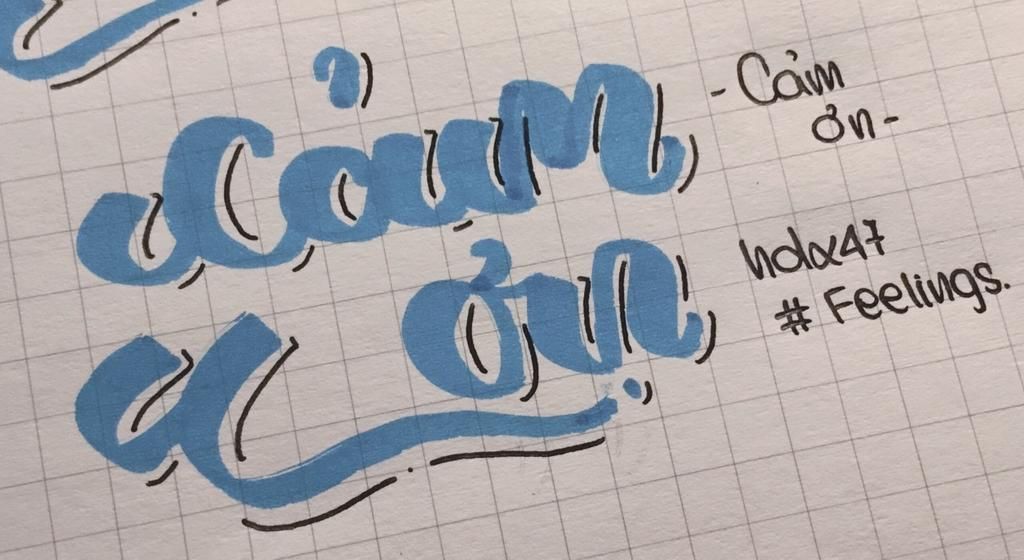 Cảm
Ơn
- Cảm
ơn -
hdx47
# Feelings.